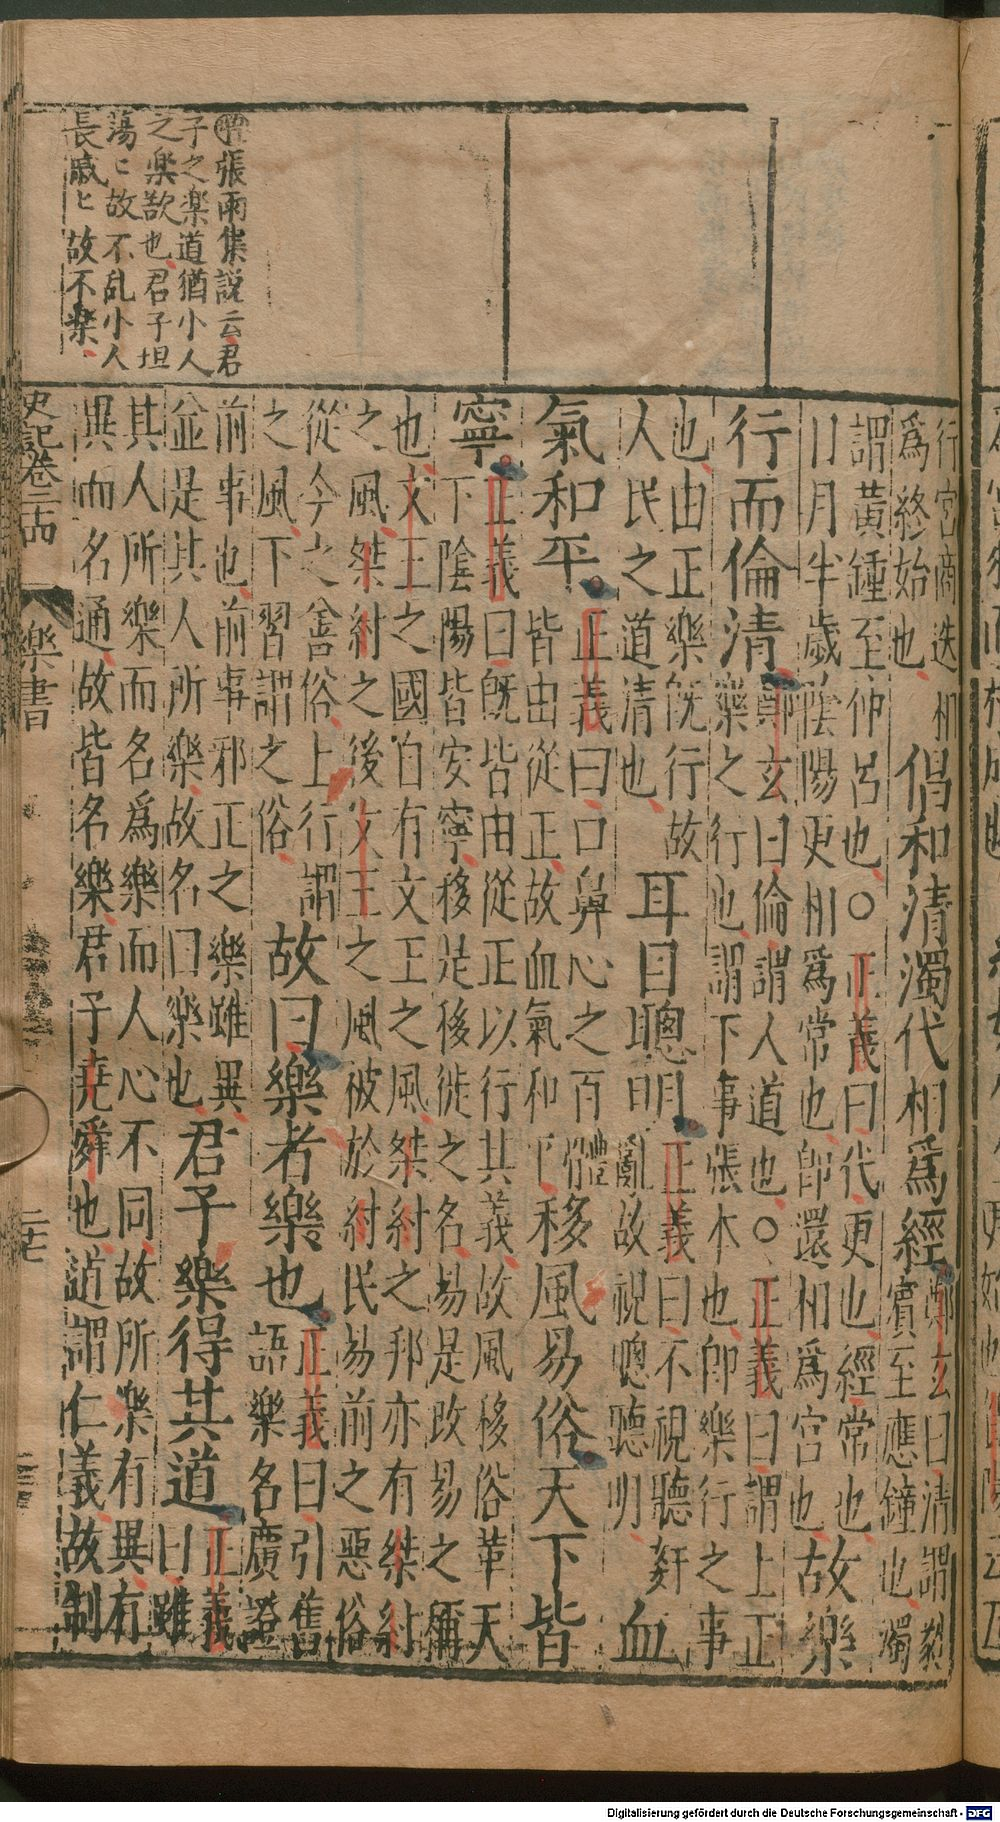 增張雨集説云君
子之楽道猶小人
之楽欲也君子坦
蕩〻故不乱小人
長戚〻故不楽
行宮商迭相
爲終始也
倡和清濁代相爲經
鄭玄曰清謂蕤
賓至應鐘也濁
謂黃鍾至仲呂也〇正義曰代更也經常也
日月半歲陰陽更相爲常也即還相爲宮也
故樂
行而倫清
鄭玄曰倫謂人道也〇正義曰謂上正
樂之行也謂下事張本也即樂行之事
也由正樂既行故
人民之道清也
耳目聰明
正義曰不視聽姧
亂故視聰聽明
血
氣和平
正義曰口鼻心之百體
皆由從正故血氣和平
移風易俗天下皆
寧
正義曰既皆由從正以行其義故風移俗革天
下陰陽皆安寧移是移徙之名易是改易之稱
也文王之國自有文王之風桀紂之邦亦有桀紂
之風桀紂之後文王之風被於紂民易前之惡俗
從今之善俗上行謂
之風下習謂之俗
故曰樂者樂也
正義曰引舊
語樂名廣證
前事也前事邪正之樂雖異
並是其人所樂故名曰樂也
君子樂得其道
正義
曰雖
其人所樂而名爲樂而人心不同故所樂有異有
異而名通故皆名樂君子堯舜也道謂仁義故制
史記卷二十四 樂書 二十七
Digitalisierung gefördert durch die Deutsche Forschungsgemeinschaft - DFG